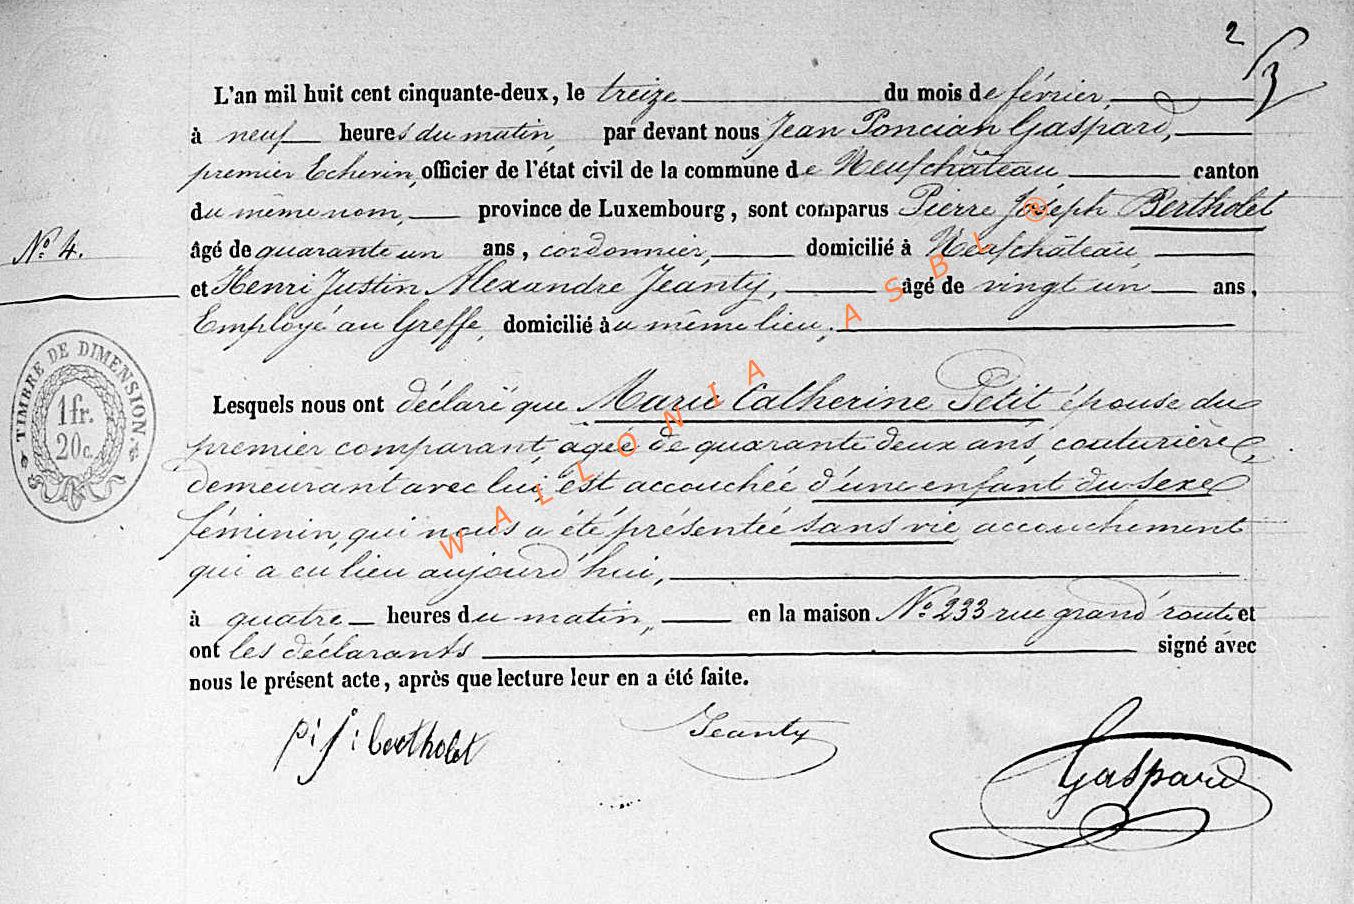 2
3
L'an mil huit cent cinquante-deux, le treize du mois de février,
à neuf heures du matin, par devant nous Jean Poncian Gaspard,
premier Echevin, officier de l'état civil de la commune de Neufchâteau canton
du même nom, province de Luxembourg, sont comparus Pierre Joseph Bertholet
N° 4. âgé de quarante un ans, cordonnier, domicilié à Neufchâteau,
et Henri Justin Alexandre Jeanty, âgé de vingt un ans,
Employé au Greffe, domicilié au même lieu;
TIMBRE DE DIMENSION.
1 fr.
20 c.
Lesquels nous ont déclaré que Marie Catherine Petit épouse du
premier comparant, âgée de quarante deux ans, couturière,
demeurant avec lui, est accouchée d'une enfant du sexe
féminin, qui nous a été présentée sans vie, accouchement
qui a eu lieu aujourd'hui,
à quatre heures du matin, en la maison N° 233 rue grand'route et
ont les déclarants signé avec
nous le présent acte, après que lecture leur en a été faite.
p: j: bertholet Jeanty Gaspard
WALLONIA ASBL ®